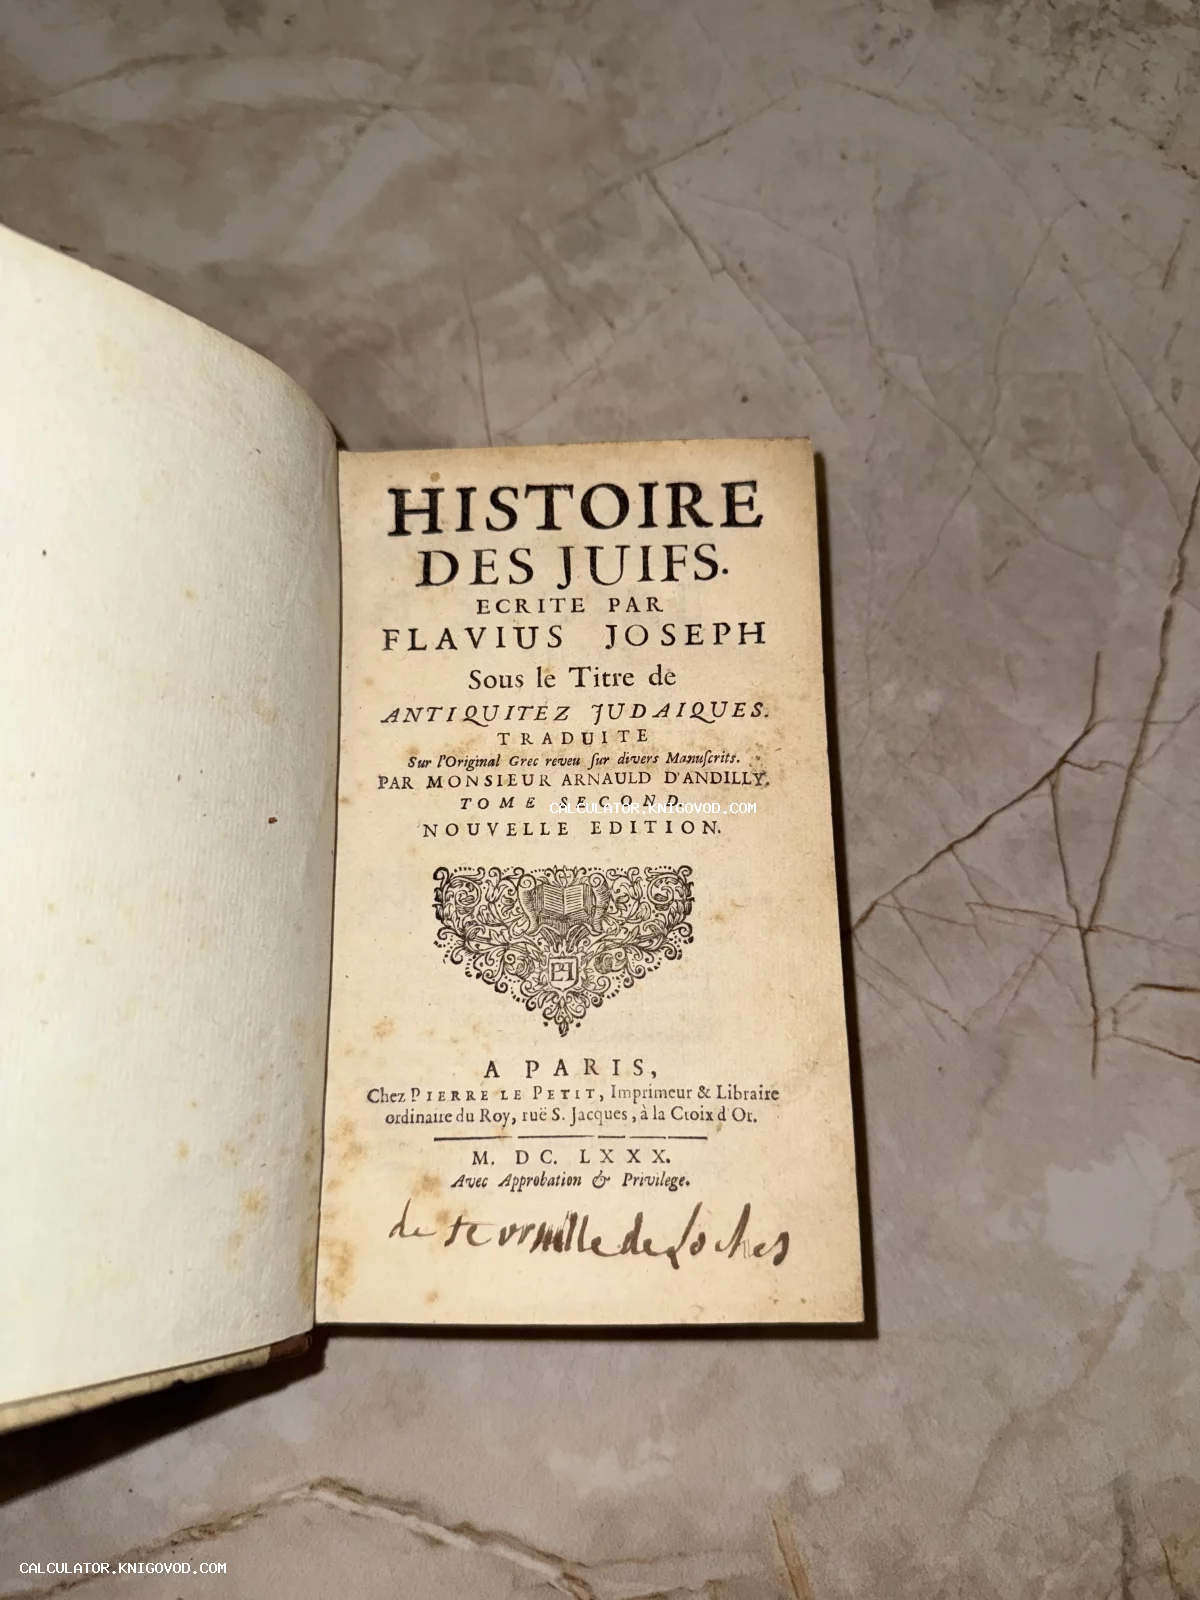 HISTOIRE
DES JUIFS.
ECRITE PAR
FLAVIUS JOSEPH
Sous le Titre de
ANTIQUITEZ JUDAIQUES.
TRADUITE
Sur l'Original Grec reveu ſur divers Manuſcrits.
PAR MONSIEUR ARNAULD D'ANDILLY.
TOME SECOND.
CALCULATOR.KNIGOVOD.COM
NOUVELLE EDITION.
A PARIS,
Chez PIERRE LE PETIT, Imprimeur & Libraire
ordinaire du Roy, ruë S. Jacques, à la Croix d'Or.
M. DC. LXXX.
Avec Approbation & Privilege.
de de Loches
CALCULATOR.KNIGOVOD.COM